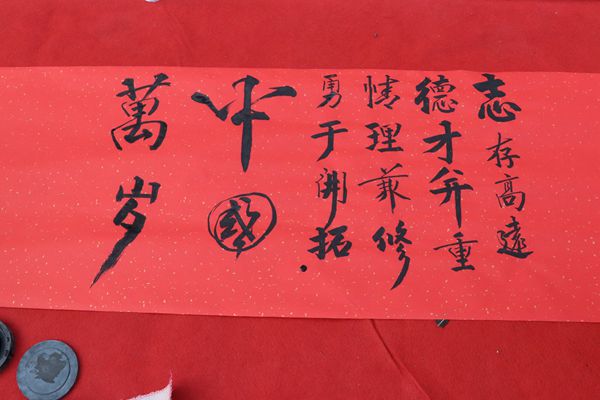 志存高遠
德才并重
情理兼修
勇于開拓.
中國
萬岁